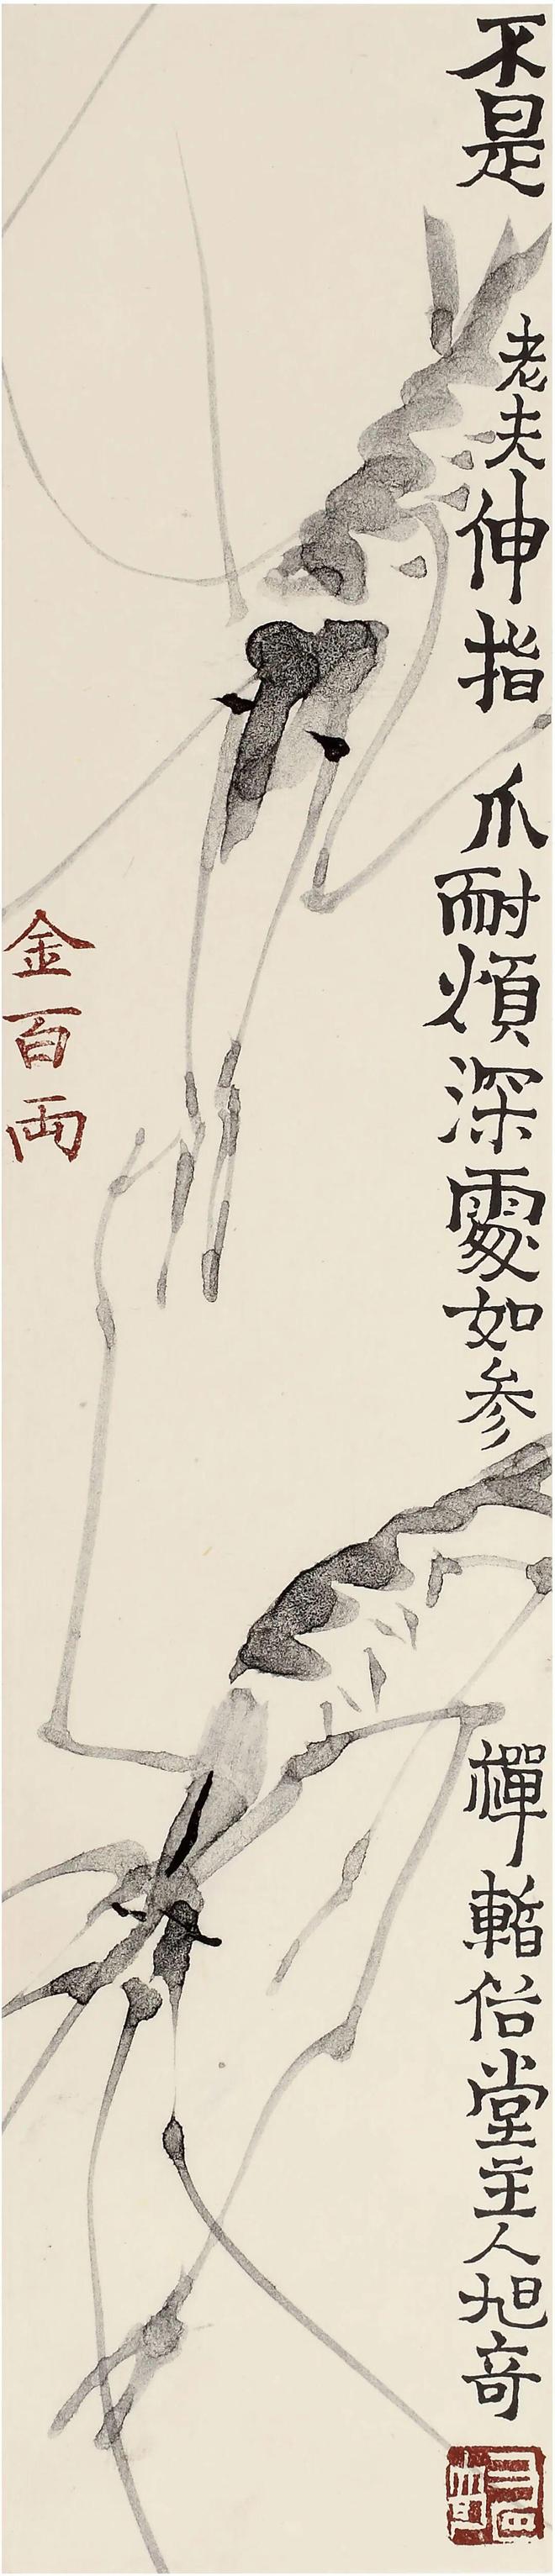 不是老夫伸指爪耐煩深處如参禪俗堂主人旭奇
金百両